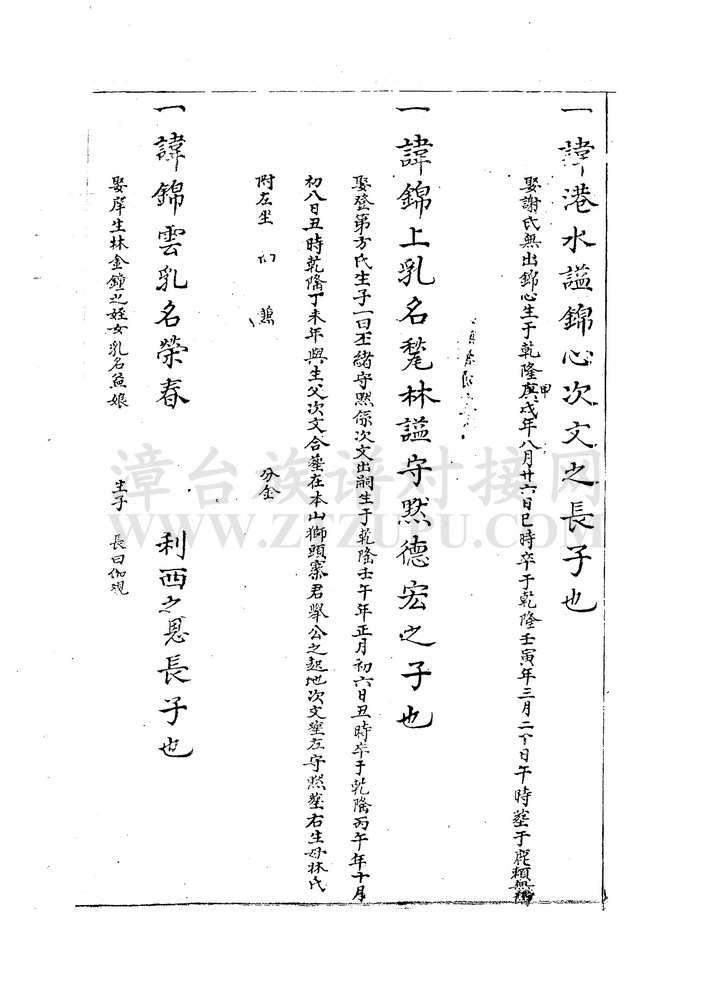 一諱港水謚錦心次文之長子也
娶謝氏無出錦心生于乾隆庚甲戌年八月廿六日巳時卒于乾隆壬寅年三月二十日午時塟于鹿頭無
一諱錦上乳名林謚守默德宏之子也
娶登第方氏生子一曰丕緒守默係次文出嗣生于乾隆壬午年正月初六日丑時卒于乾隆丙午年十月
初八日丑時乾隆丁未年與生父次文合塟在本山獅頭寨君舉公之起地次文塟左守默塟右生母林氏
附左坐 兼 分金
一諱錦雲乳名榮春 利西之恩長子也
娶岸生林金鐘之姪女乳名魚娘 生子 長曰
漳台族谱对接网
WWW.ZTZUPU.COM